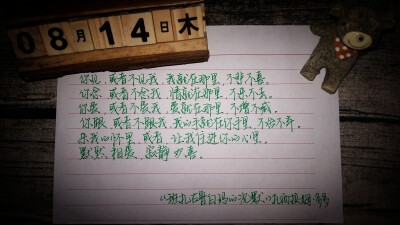 08月14日木
你见，或者不见我，我就在那里，不悲不喜。
你念，或者不念我，情就在那里，不来不去。
你爱，或者不爱我，爱就在那里，不增不减。
你跟，或者不跟我，我的手就在你手里，不舍不弃。
来我的怀里，或者，让我住进你的心里。
默然，相爱，寂静，欢喜。
《班扎古鲁白玛的沉默》扎西拉姆·多多